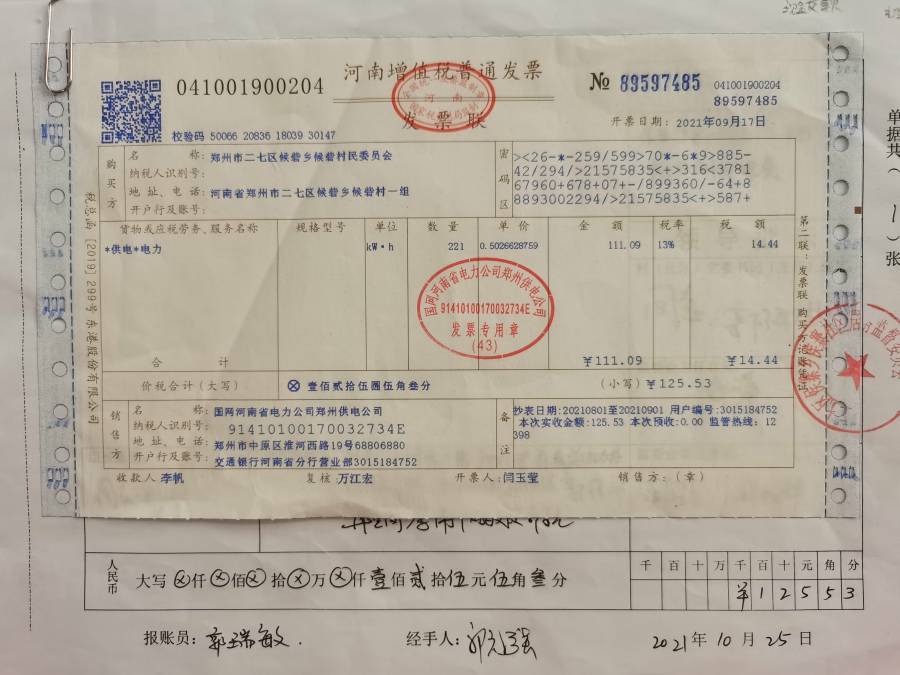 041001900204
河南增值税普通发票
发票联
№ 89597485
041001900204
89597485
校验码 50066 20836 18039 30147
开票日期: 2021年09月17日
购买方
名称: 郑州市二七区候砦乡候砦村民委员会
纳税人识别号:
地址、电话: 河南省郑州市二七区候砦乡候砦村一组
开户行及账号:
密码区
><26-*-259/599>70*-6*9>885-
42/294/>21575835<+>316<3781
67960+678+07+-/899360/-64+8
8893002294/>21575835<+>587+
货物或应税劳务、服务名称 规格型号 单位 数量 单价 金额 税率 税额
*供电*电力 kW·h 221 0.5026628759 111.09 13% 14.44
国网河南省电力公司郑州供电公司
91410100170032734E
发票专用章
(43)
合计 ¥111.09 ¥14.44
价税合计(大写) ⊗ 壹佰贰拾伍圆伍角叁分 (小写) ¥125.53
销售方
名称: 国网河南省电力公司郑州供电公司
纳税人识别号: 91410100170032734E
地址、电话: 郑州市中原区淮河西路19号68806880
开户行及账号: 交通银行河南省分行营业部3015184752
备注
抄表日期:20210801至20210901 用户编号:3015184752
本次实收金额:125.53 本次预收:0.00 监管热线: 12
398
收款人: 李帆 复核: 万江宏 开票人: 闫玉莹 销售方: (章)
税总函[2019]299号东港股份有限公司
第二联: 发票联 购买方记账凭证
单据共(1)张
人民币 大写 ⊗仟⊗佰⊗拾⊗万⊗仟壹佰贰拾伍元伍角叁分
千百十万千百十元角分
¥12553
报账员: 郭瑞敏. 经手人: 2021年10月25日